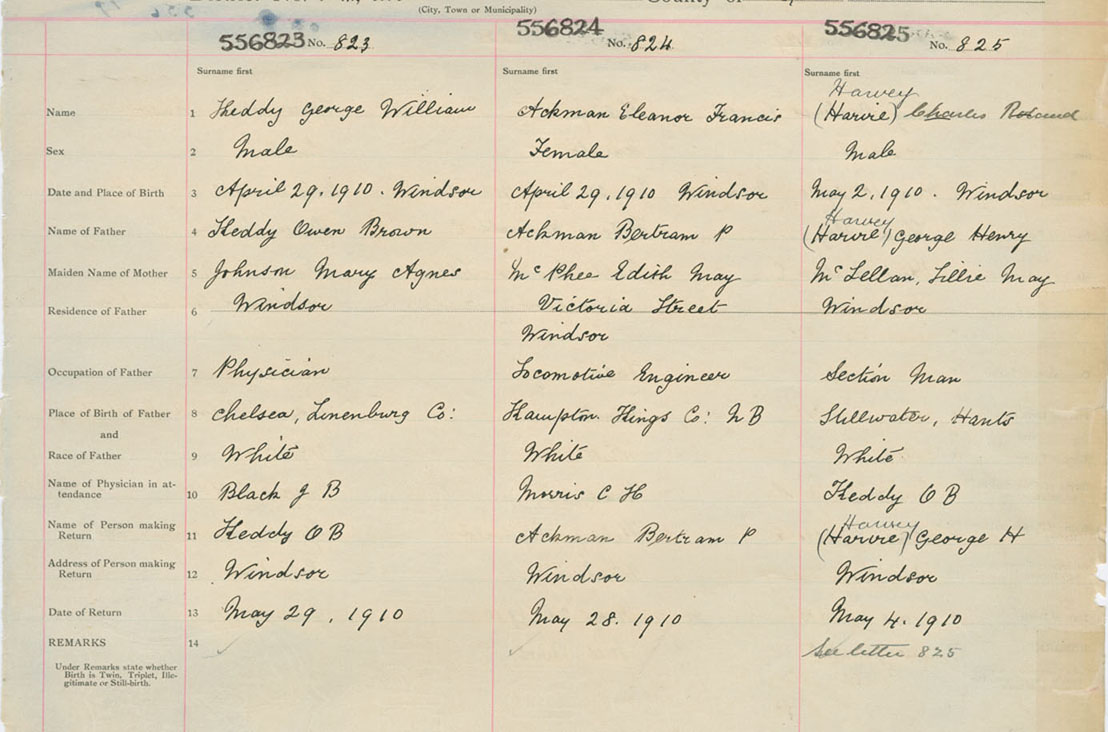 (City, Town or Municipality)
County of
556823 No. 823
556824 No. 824
556825 No. 825
Surname first Surname first Surname first
Harvey
Name 1 Keddy George William Ackman Eleanor Francis (Harvie) Charles
Sex 2 Male Female Male
Date and Place of Birth 3 April 29, 1910. Windsor April 29, 1910 Windsor May 2, 1910. Windsor
Harvey
Name of Father 4 Keddy Owen Brown Ackman Bertram P (Harvie) George Henry
Maiden Name of Mother 5 Johnson Mary Agnes McPhee Edith May McLellan, Lillie May
Residence of Father 6 Windsor Victoria Street Windsor
Windsor
Occupation of Father 7 Physician Locomotive Engineer Section Man
Place of Birth of Father 8 Chelsea, Lunenburg Co: Hampton Kings Co: N B Stillwater, Hants
and
Race of Father 9 White White White
Name of Physician in at-
tendance 10 Black J B Morris C H Keddy O B
Harvey
Name of Person making
Return 11 Keddy O B Ackman Bertram P (Harvie) George H
Address of Person making
Return 12 Windsor Windsor Windsor
Date of Return 13 May 29, 1910 May 28. 1910 May 4. 1910
REMARKS 14 See letter 825
Under Remarks state whether
Birth is Twin, Triplet, Ille-
gitimate or Still-birth.